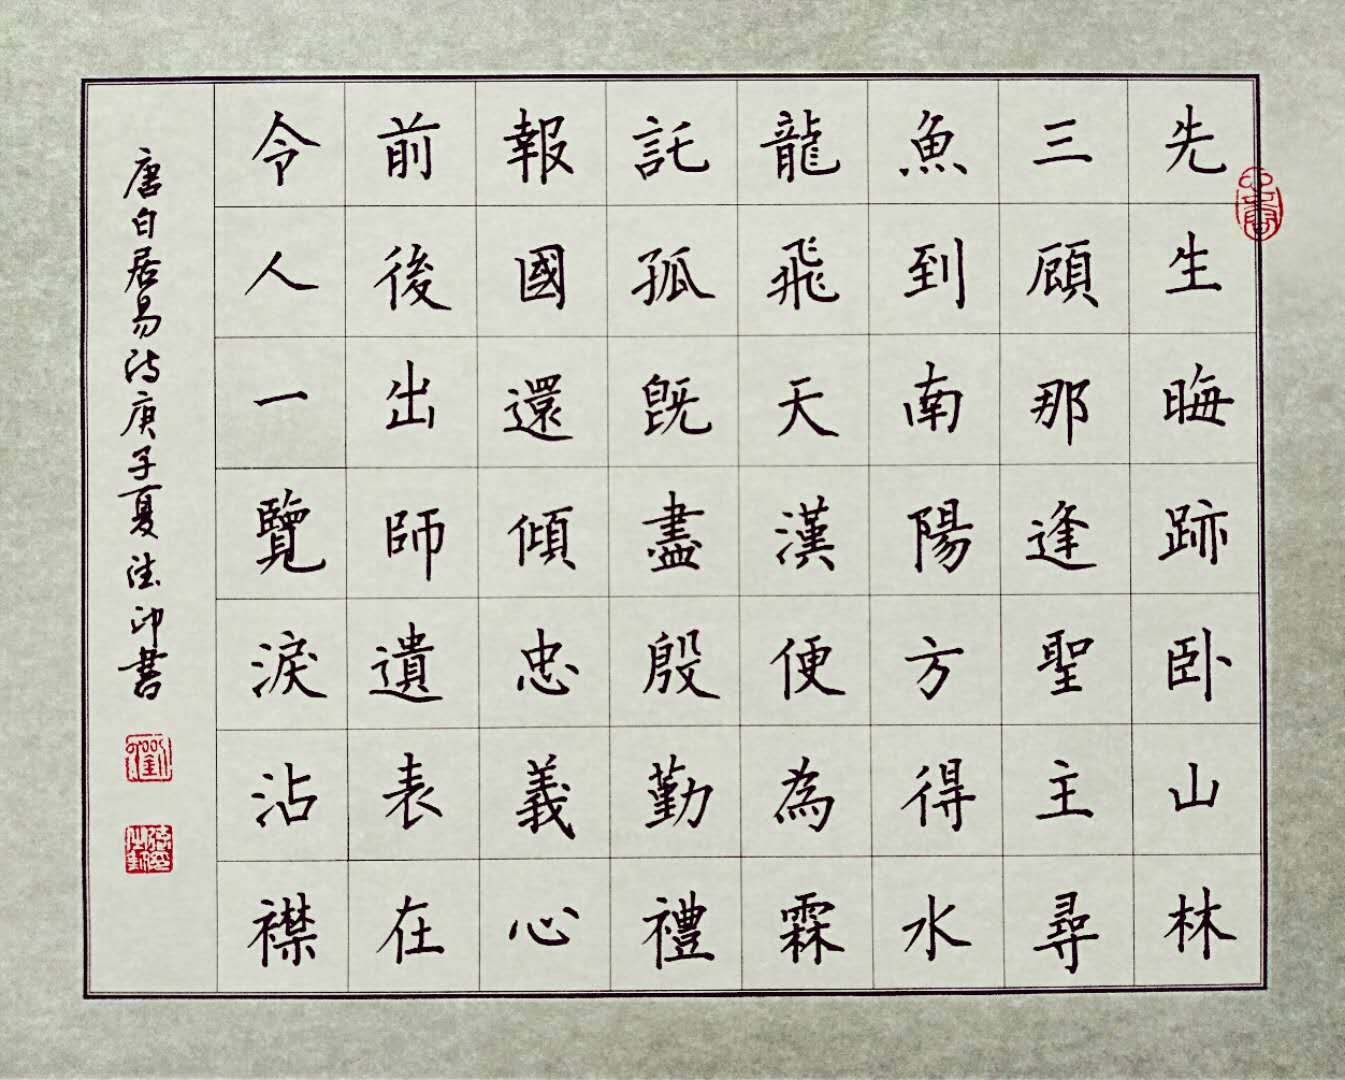 先生晦跡卧山林
三顧那逢聖主尋
魚到南陽方得水
龍飛天漢便為霖
託孤既盡殷勤禮
報國還傾忠義心
前後出師遺表在
令人一覽淚沾襟
唐白居易詩庚子夏法印書